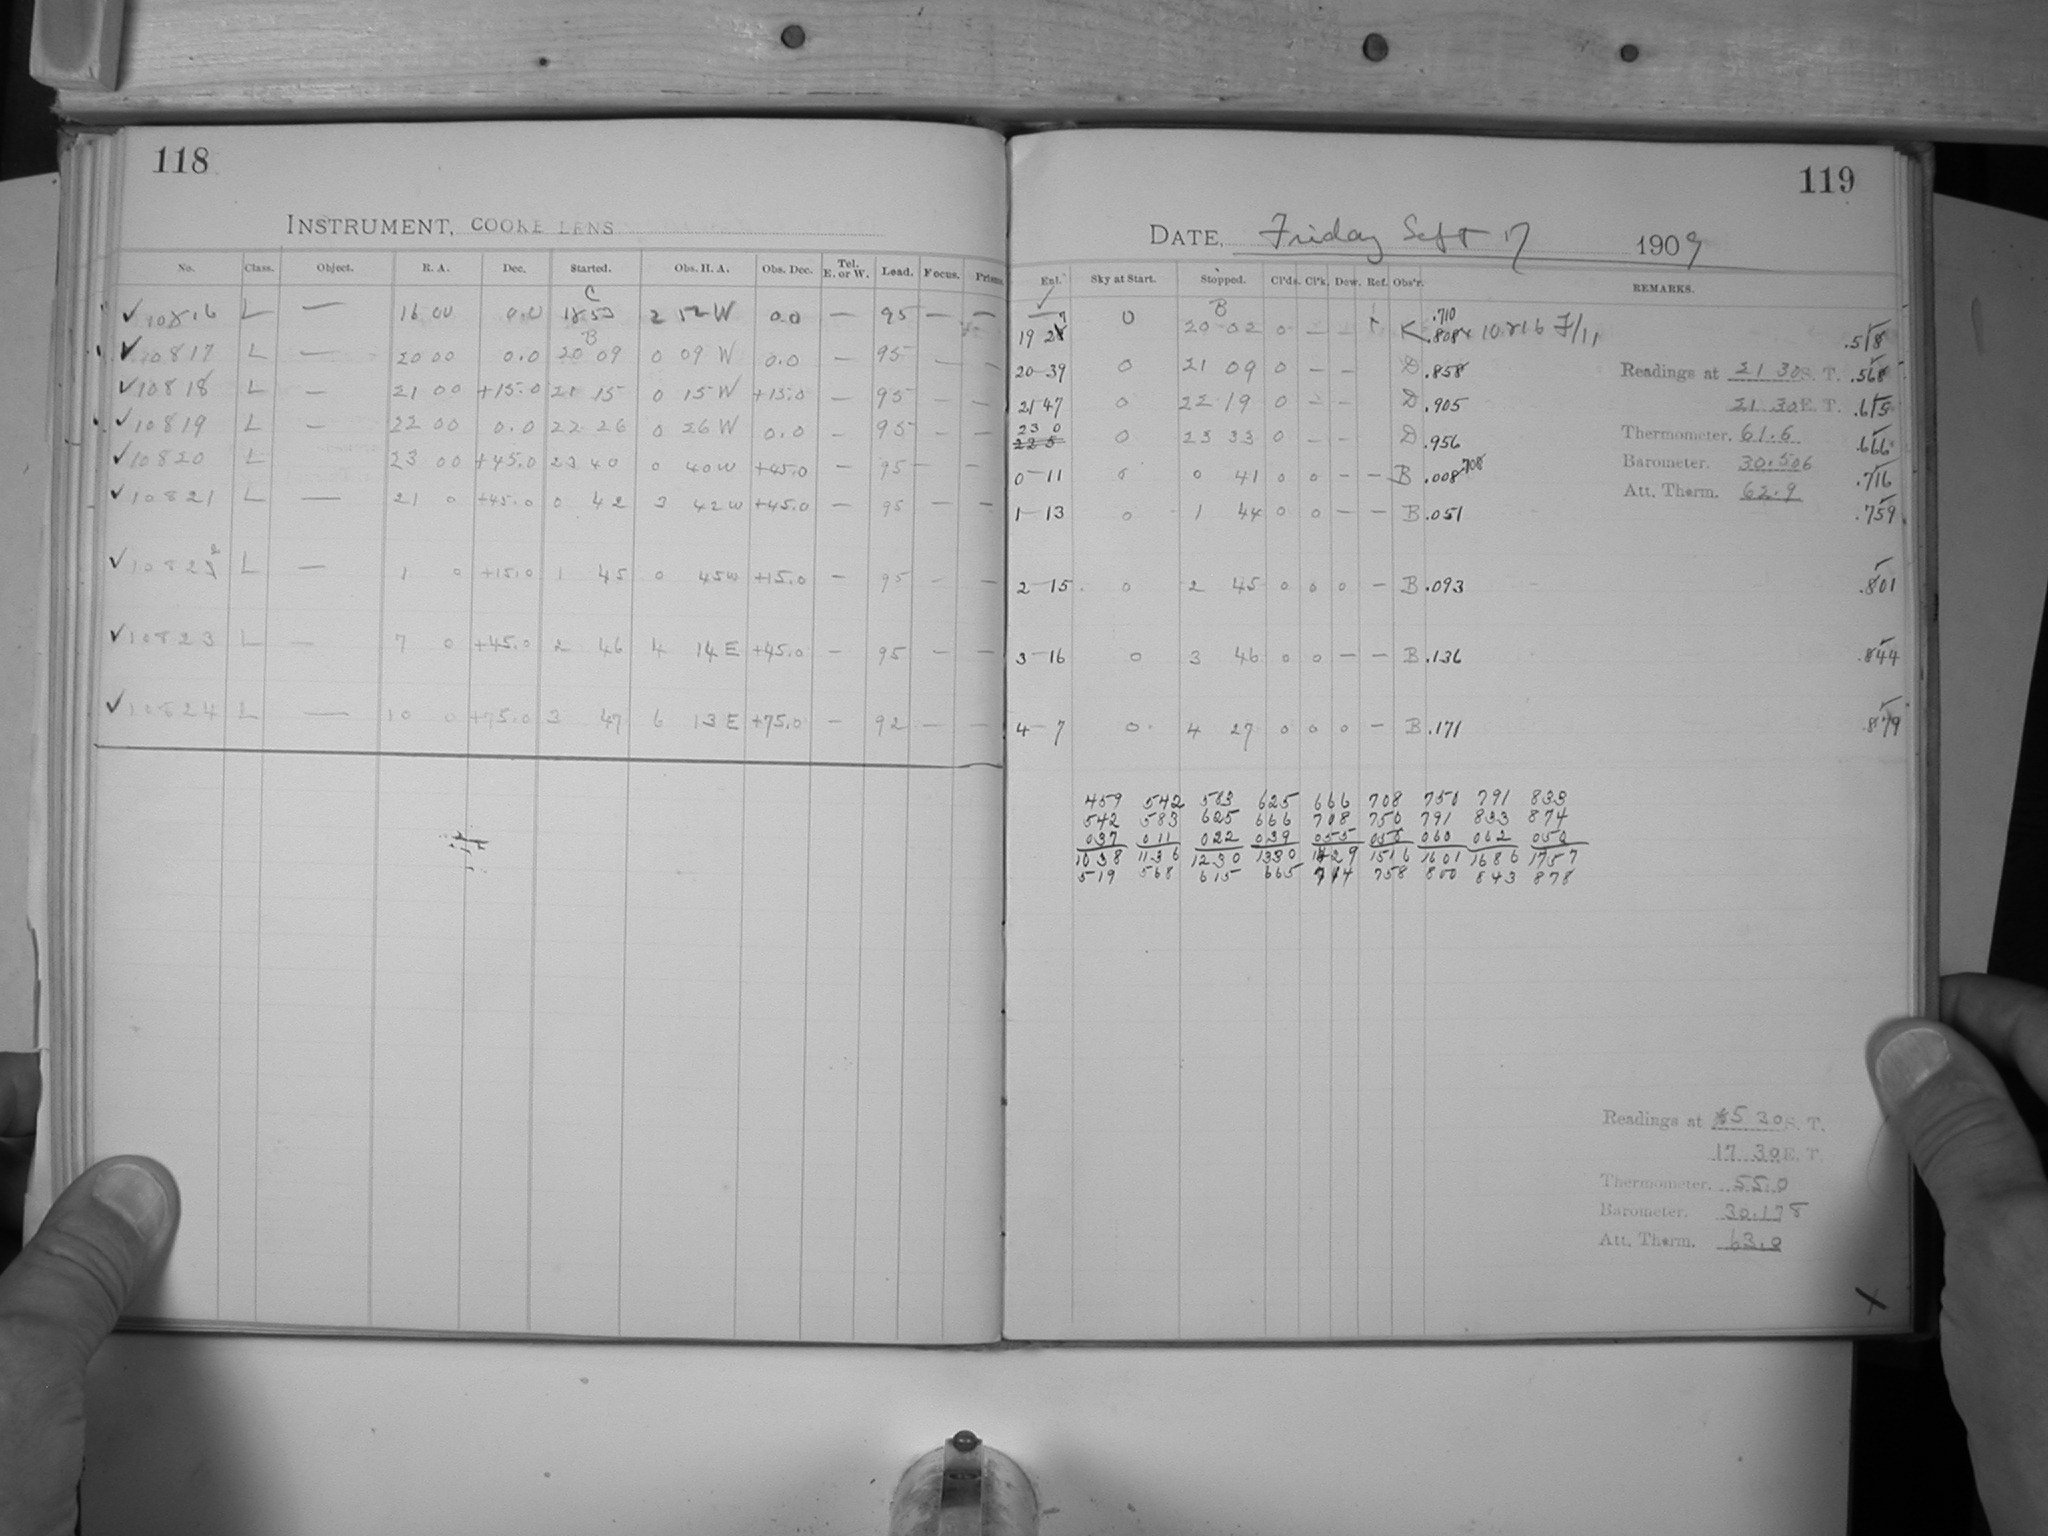 118
INSTRUMENT, COOKE LENS
No. Class. Object. R. A. Dec. Started. Obs. H. A. Obs. Dec. Tel. E. or W. Lead. Focus. Prisms.
C
✓ 10816 L — 16 00 0.0 18 53 2 52 W 0.0 — 95 — —
B
✓ 10817 L — 20 00 0.0 20 09 0 09 W 0.0 — 95 — —
✓ 10818 L — 21 00 +15.0 21 15 0 15 W +15.0 — 95 — —
✓ 10819 L — 22 00 0.0 22 26 0 26 W 0.0 — 95 — —
✓ 10820 L 23 00 +45.0 23 40 0 40 W +45.0 — 95 — —
✓ 10821 L — 21 0 +45.0 0 42 3 42 W +45.0 — 95 — —
✓ 10822 L — 1 0 +15.0 1 45 0 45 W +15.0 — 95 — —
✓ 10823 L — 7 0 +45.0 2 46 4 14 E +45.0 — 95 — —
✓ 10824 L — 10 0 +75.0 3 47 6 13 E +75.0 — 92 — —
119
DATE, Friday Sept 17 1909
Ent. Sky at Start. Stopped. Cl'ds. Cl'k. Dew. Ref. Obs'r. REMARKS.
✓ B .710
19 27 0 20 02 0 — — K .808 × 10816 F/11 .518
20-39 0 21 09 0 — — D .858 Readings at 21 30 S. T. .568
21 47 0 22 19 0 — — D .905 21 30 E. T. .615
23 0
22 5 0 23 33 0 — — D .956 Thermometer. 61.6 .666
0-11 0 0 41 0 0 — — B .008 .708 Barometer. 30.506 .716
Att. Therm. 62.9
1-13 0 1 44 0 0 — — B .051 .759
2-15 0 2 45 0 0 0 — B .093 .801
3-16 0 3 46 0 0 — — B .136 .844
4-7 0 4 27 0 0 0 — B .171 .879
459 542 583 625 666 708 750 791 833
542 583 625 666 708 750 791 833 874
037 011 022 039 055 058 060 062 050
1038 1136 1230 1330 1429 1516 1601 1686 1757
519 568 615 665 714 758 800 843 878
Readings at 5 30 S. T.
17 30 E. T.
Thermometer. 55.0
Barometer. 30.178
Att. Therm. 63.0
X